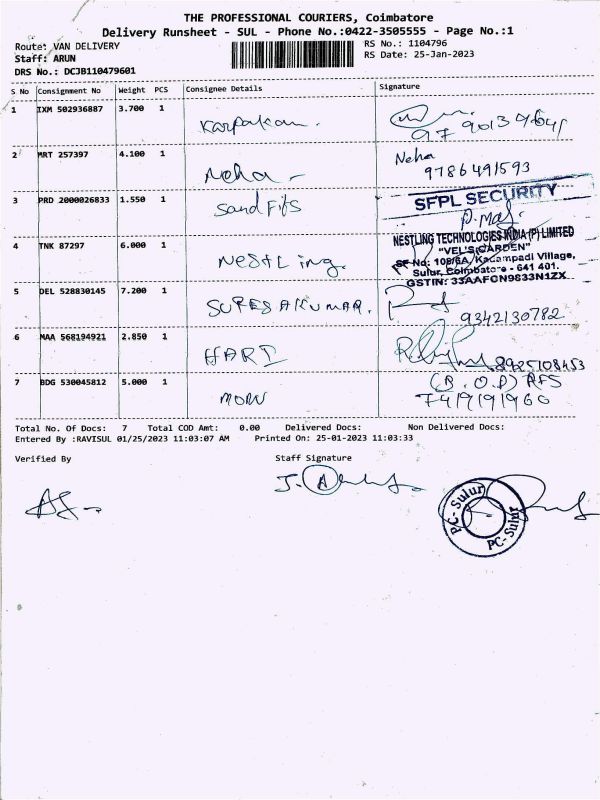 THE PROFESSIONAL COURIERS, Coimbatore
Delivery Runsheet - SUL - Phone No.:0422-3505555 - Page No.:1
Route: VAN DELIVERY
RS No.: 1104796
Staff: ARUN
RS Date: 25-Jan-2023
DRS No.: DCJB110479601
S No Consignment No Weight PCS Consignee Details Signature
1 IXM 502936887 3.700 1 Karpakam.
2 MRT 257397 4.100 1 Neha - Neha
9786491593
3 PRD 2000026833 1.550 1 Sand Fits SFPL SECURITY
4 TNK 87297 6.000 1 Nestling. NESTLING TECHNOLOGIES INDIA (P) LIMITED
"VEL'S GARDEN"
SF No: 106/6A, Kadampadi Village,
Sulur, Coimbatore - 641 401.
GSTIN: 33AAFCN9833N1ZX
5 DEL 528830145 7.200 1 SURESHKUMAR. 9342130782
6 MAA 568194921 2.850 1 HARI 8925108453
7 BDG 530045812 5.000 1 (B.O.P) RFS
7419191960
Total No. Of Docs: 7 Total COD Amt: 0.00 Delivered Docs: Non Delivered Docs:
Entered By :RAVISUL 01/25/2023 11:03:07 AM Printed On: 25-01-2023 11:03:33
Verified By Staff Signature
PC-Sulur
PC-Sulur